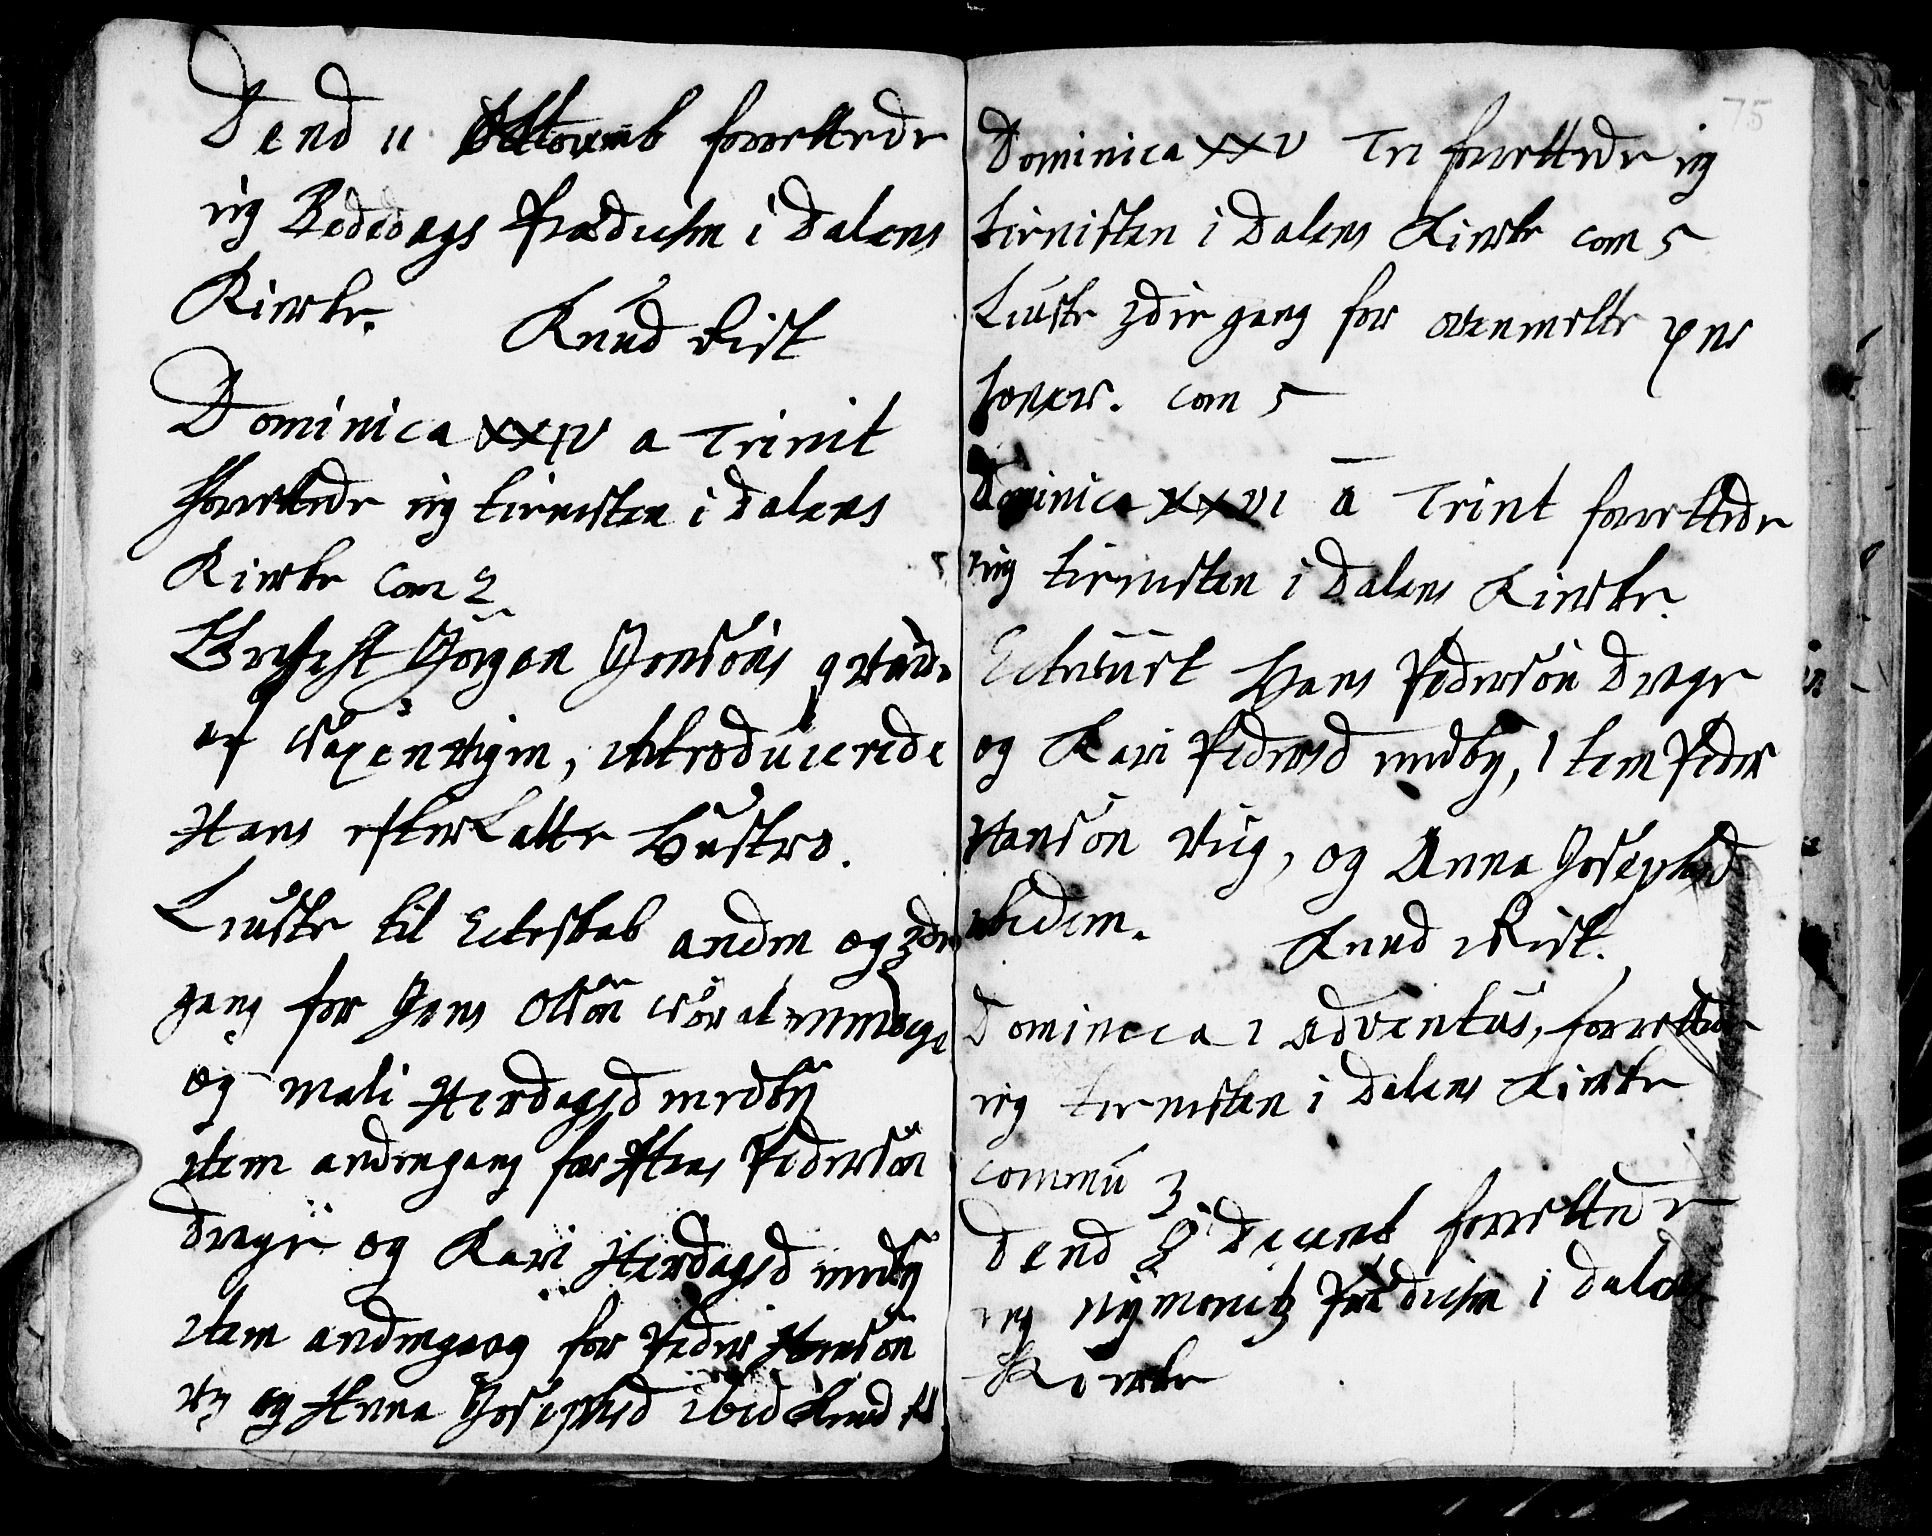 Dend 11 forrettede
ieg Bededags Prædichen i Dalens
Kircke. Knud Rist
Dominica XXIV a Trinit
forrettede ieg tienesten i Dalens
Kircke Com 2
Jörgen Jonsöns
af introducierede
Hans effterlatte Hustro.
Liuste til Ecteskab anden og 3die
gang for Jens Olsön
og Mali Herdagsd medby
item andengang for Hans Pedersön
Drage og Kari Herdagsd
item andengang for Peder Hansön
og Anna Josephsd ibid Knud R
75
Dominica XXV Tri forrettede ieg
tienisten i Dalens Kircke com 5
Liuste 3die gang for ovenmelte
com 5
Dominica XXVI a Trint forrettede
ieg tienisten i Dalens Kircke.
Hans Pedersön Drage
og Kari Pedersd medby, Item Peder
Hansön og Anna Josephsd
ibidem. Knud Rist.
Domineca 1 Adventus, forrettede
ieg tienesten i Dalens Kircke
commu 3
Dend 8 Decemb forrettede
ieg Nÿmonitz Prædichen i Dalens
Kircke